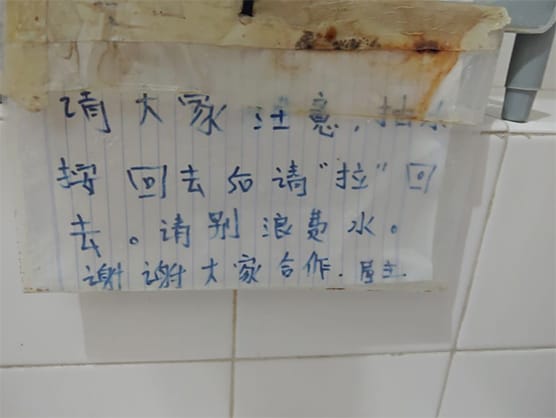 请大家注意，抽水
按回去后请“拉”回
去。请别浪费水。
谢谢大家合作．屋主．